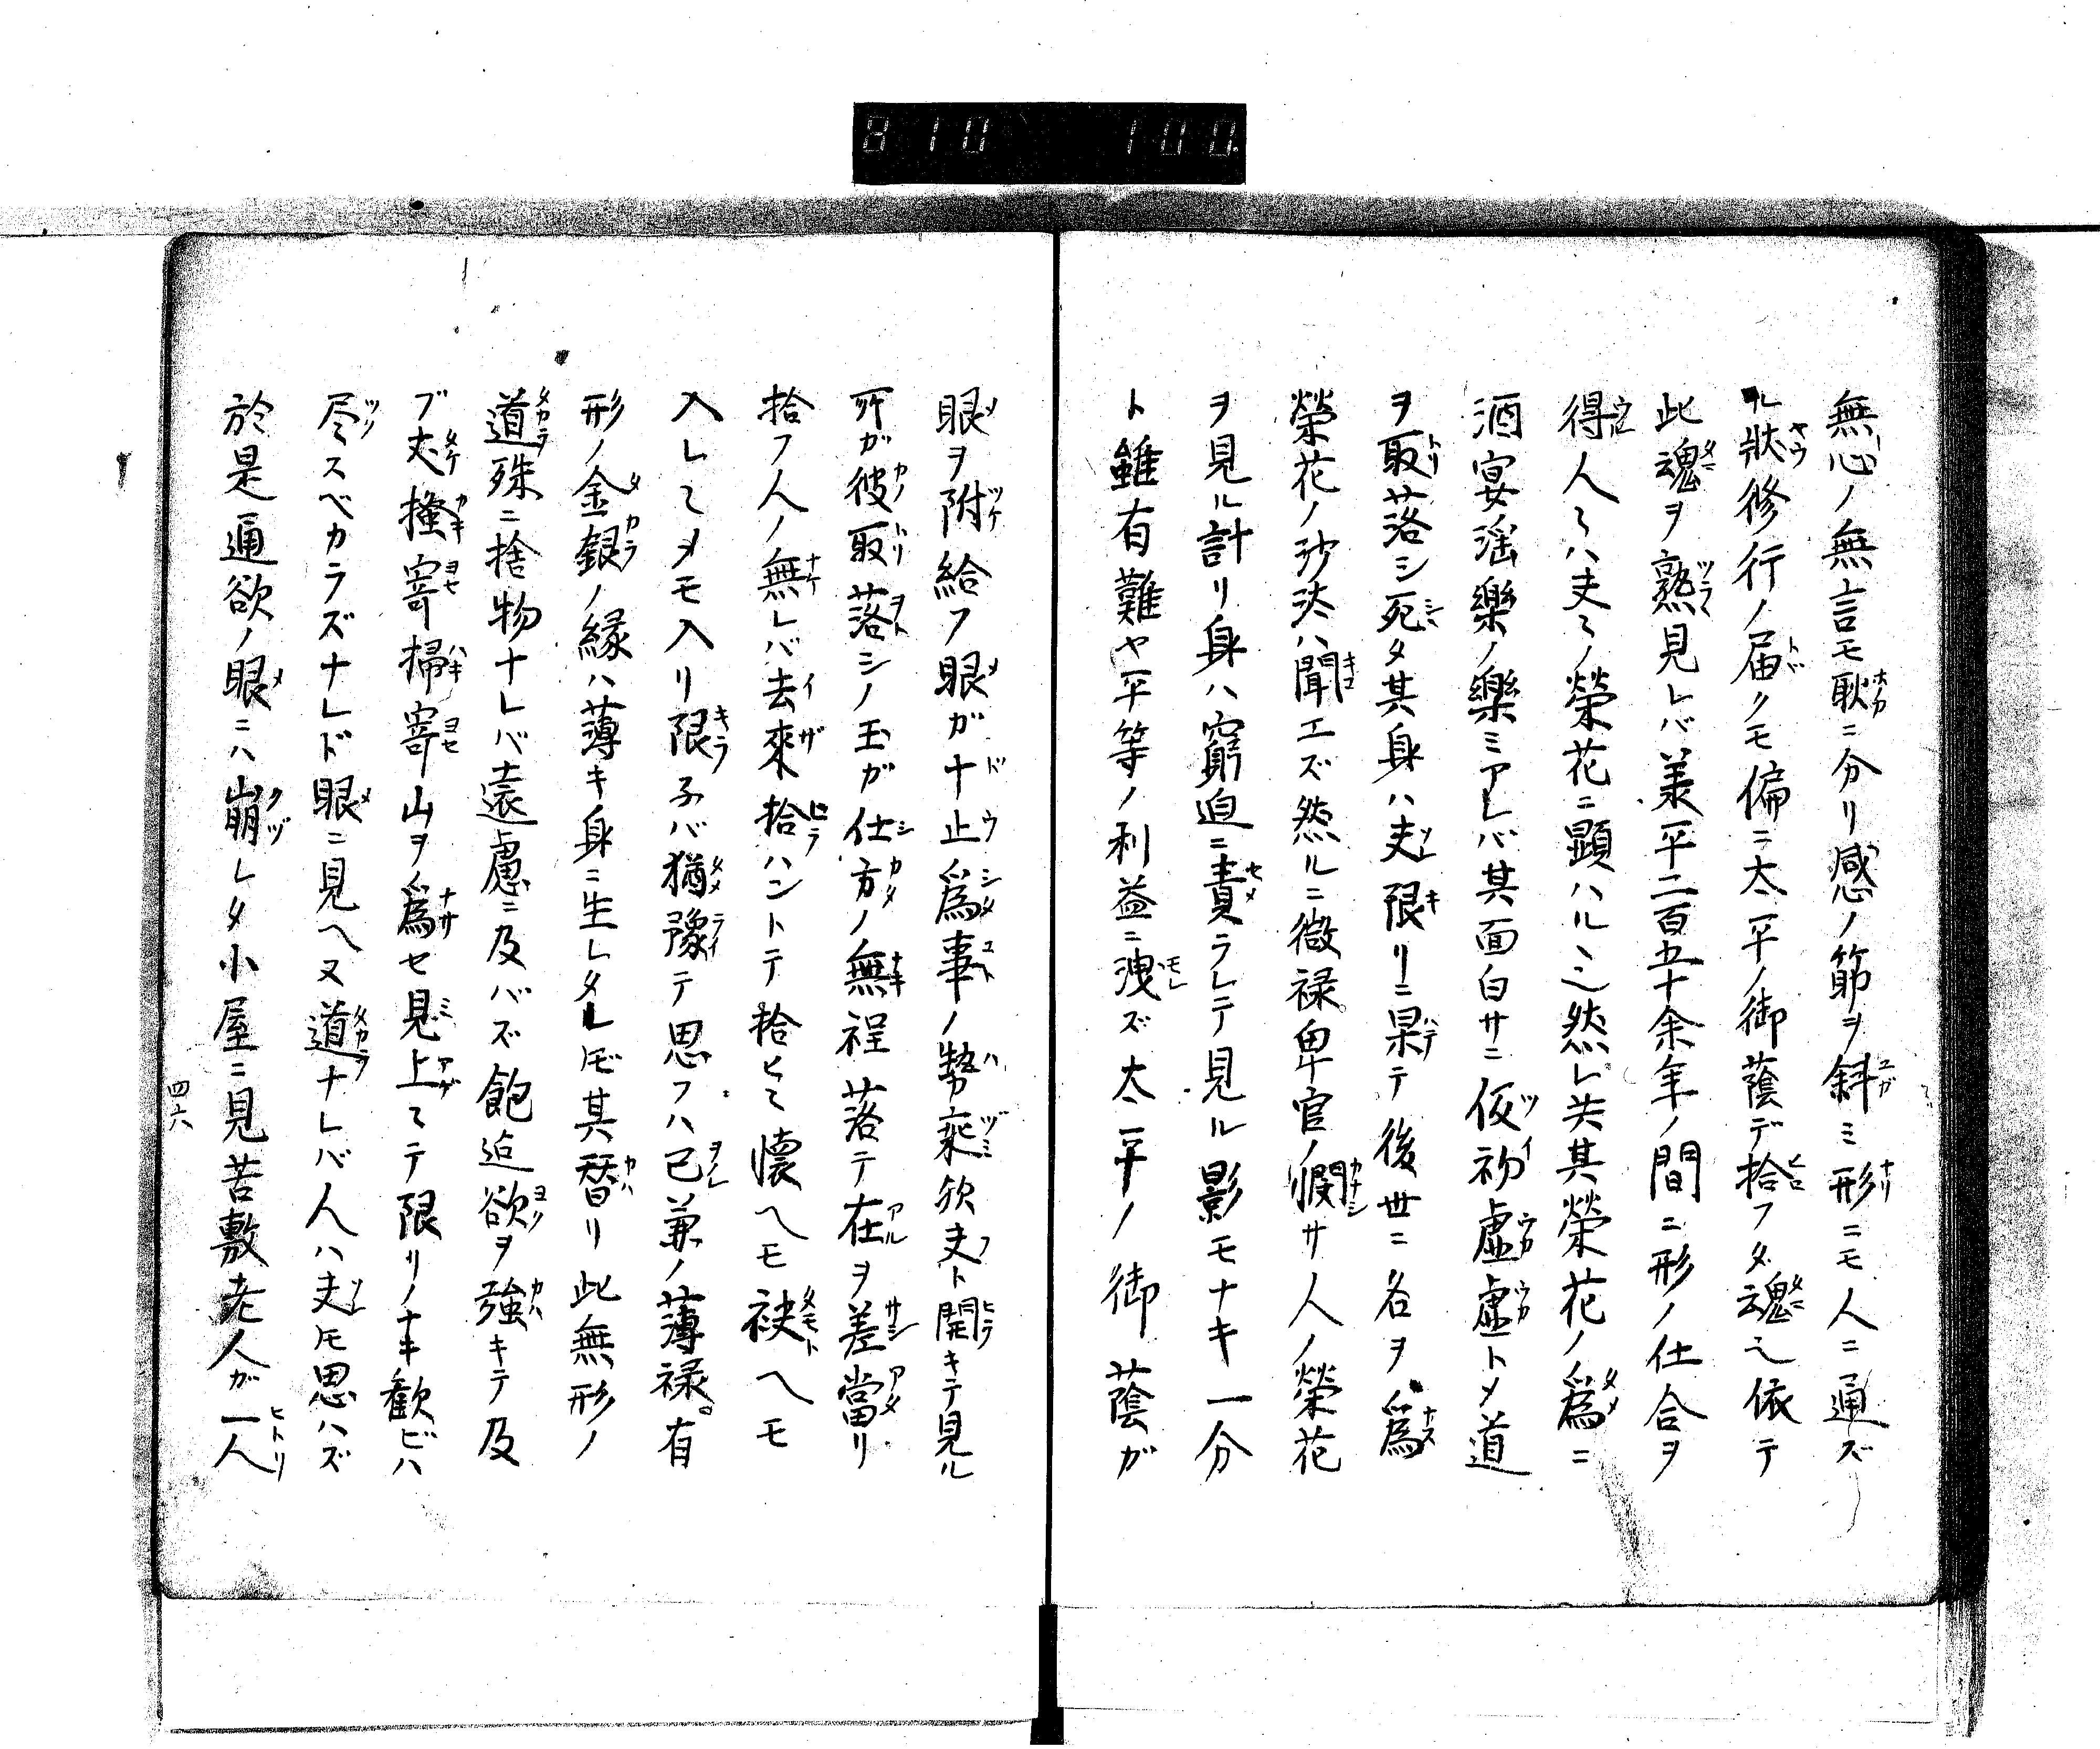 810 100.
無心ノ無言モ耿ニ分リ感ノ節ヲ斜ミ形ニモ人ニ通ズ
ル狀修行ノ届クモ偏ニ太平ノ御蔭デ拾フタ魂也依テ
此魂ヲ熟見レバ美平二百五十余年ノ間ニ形ノ仕合ヲ
得人々ハ夫々ノ榮花ニ顕ハルヽ也然レ共其榮花ノ為ニ
酒宴滛樂ノ樂ミアレバ其面白サニ仮初虚虚トメ道
ヲ取落シ死タ其身ハ夫限リニ果テ後世ニ名ヲ為
榮花ノ沙汰ハ聞エズ然ルニ微禄卑官ノ惘サ人ノ榮花
ヲ見ル計リ身ハ窮迫ニ責ラレテ見ル影モナキ一分
ト雖有難ヤ平等ノ利益ニ洩ズ太平ノ御蔭ガ
眼ヲ附給フ眼ガ十止為事ノ勢乘欤夫ト開キテ見ル
所ガ彼取落シノ玉ガ仕方ノ無程落テ在ヲ差當リ
拾フ人ノ無レバ去來拾ハントテ拾ヒ々懐ヘモ袂ヘモ
入レ々メモ入リ限子バ猶豫テ思フハ己兼ノ薄禄。有
形ノ金銀ノ緣ハ薄キ身ニ生レタレ𪜈其替リ此無形ノ
道殊ニ捨物ナレバ遠慮ニ及バズ飽迠欲ヲ強キテ及
ブ丈搔寄掃寄山ヲ為セ見上々テ限リノナキ歓ビハ
尽スベカラズナレド眼ニ見ヘヌ道ナレバ人ハ夫𪜈思ハズ
於是通欲ノ眼ニハ崩レタ小屋ニ見苦敷老人ガ一人
四六